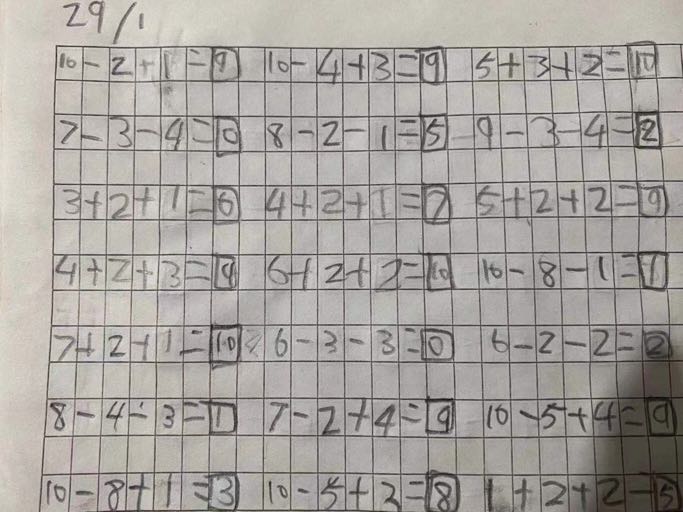 29/1
10-2+1=9 10-4+3=9 5+3+2=10
7-3-4=0 8-2-1=5 9-3-4=2
3+2+1=6 4+2+1=7 5+2+2=9
4+2+3=9 6+2+2=10 10-8-1=1
7+2+1=10 6-3-3=0 6-2-2=2
8-4-3=1 7-2+4=9 10-5+4=9
10-8+1=3 10-5+3=8 1+2+2=5